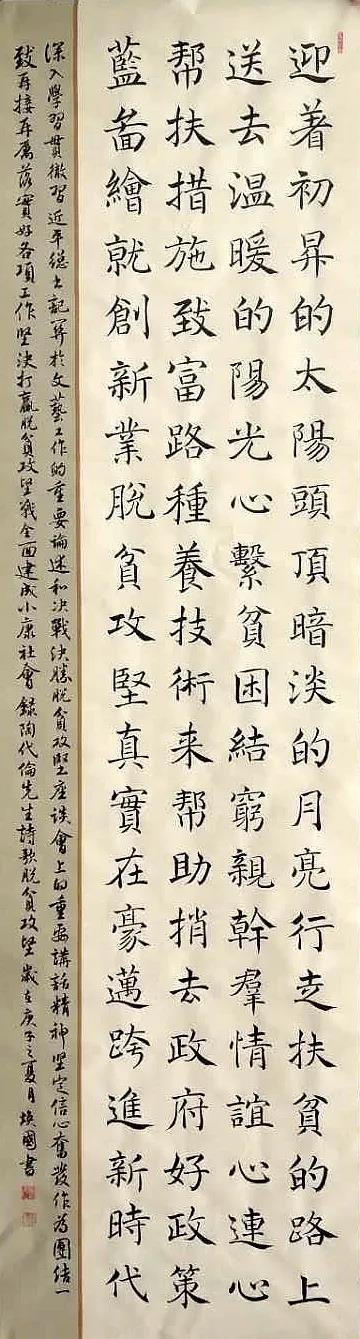 迎着初昇的太陽頭頂暗淡的月亮行走扶貧的路上
送去温暖的陽光心繫貧困結窮親幹羣情誼心連心
帮扶措施致富路種養技術来帮助捎去政府好政策
藍啚繪就創新業脱貧攻堅真實在豪邁跨進新時代
深入學習貫徹習近平總书記關於文藝工作的重要論述和决戰决勝脱貧攻堅座談會上的重要講話精神坚定信心奮發作為團结一
致再接再厲落實好各項工作坚决打贏脱貧攻坚戰全面建成小康社會 録陶代倫先生詩歌脱貧攻坚 歲在庚子之夏月 焕國書